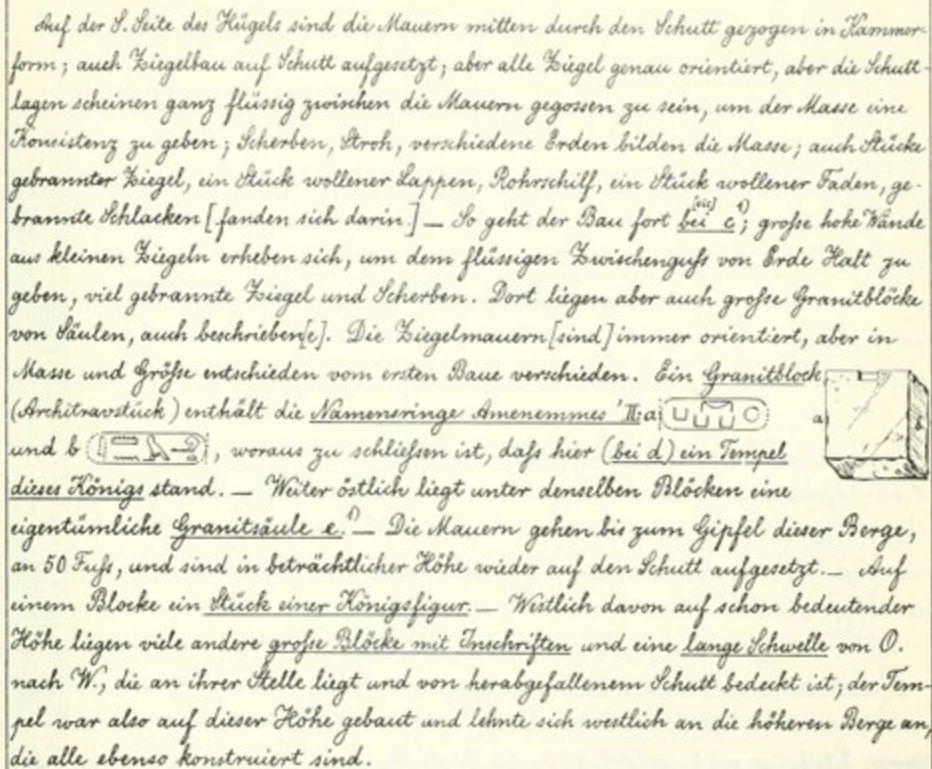 Auf der S. Seite des Hügels sind die Mauern mitten durch den Schutt gezogen in Kammer-
form; auch Ziegelbau auf Schutt aufgesetzt; aber alle Ziegel genau orientiert, aber die Schutt-
lagen scheinen ganz flüssig zwischen die Mauern gegossen zu sein, um der Masse eine
Konsistenz zu geben; Scherben, Stroh, verschiedene Erden bilden die Masse; auch Stücke
gebrannter Ziegel, ein Stück wollener Lappen, Rohrschilf, ein Stück wollener Faden, ge-
brannte Schlacken [fanden sich darin.] — So geht der Bau fort bei [sic] c¹⁾; große hohe Wände
aus kleinen Ziegeln erheben sich, um dem flüssigen Zwischenguß von Erde Halt zu
geben, viel gebrannte Ziegel und Scherben. Dort liegen aber auch große Granitblöcke
von Säulen, auch beschrieben[e]. Die Ziegelmauern [sind] immer orientiert, aber in
Masse und Größe entschieden vom ersten Baue verschieden. Ein Granitblock
(Architravstück) enthält die Namensringe Amenemmes' III: a
a
und b, woraus zu schließen ist, daß hier (bei d) ein Tempel
dieses Königs stand. — Weiter östlich liegt unter denselben Blöcken eine
eigentümliche Granitsäule e.¹⁾ — Die Mauern gehen bis zum Gipfel dieser Berge,
an 50 Fuß, und sind in beträchtlicher Höhe wieder auf den Schutt aufgesetzt. — Auf
einem Blocke ein Stück einer Königsfigur. — Westlich davon auf schon bedeutender
Höhe liegen viele andere große Blöcke mit Inschriften und eine lange Schwelle von O.
nach W., die an ihrer Stelle liegt und von herabgefallenem Schutt bedeckt ist; der Tem-
pel war also auf dieser Höhe gebaut und lehnte sich westlich an die höheren Berge an,
die alle ebenso konstruiert sind.